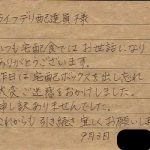 ライフデリ配達員様
いつも宅配食ではお世話になり
ありがとうございます。
昨日は宅配ボックスを出し忘れ
大変ご迷惑をおかけしました。
申し訳ありませんでした。
これからも引き続き宜しくお願いします
9月3日